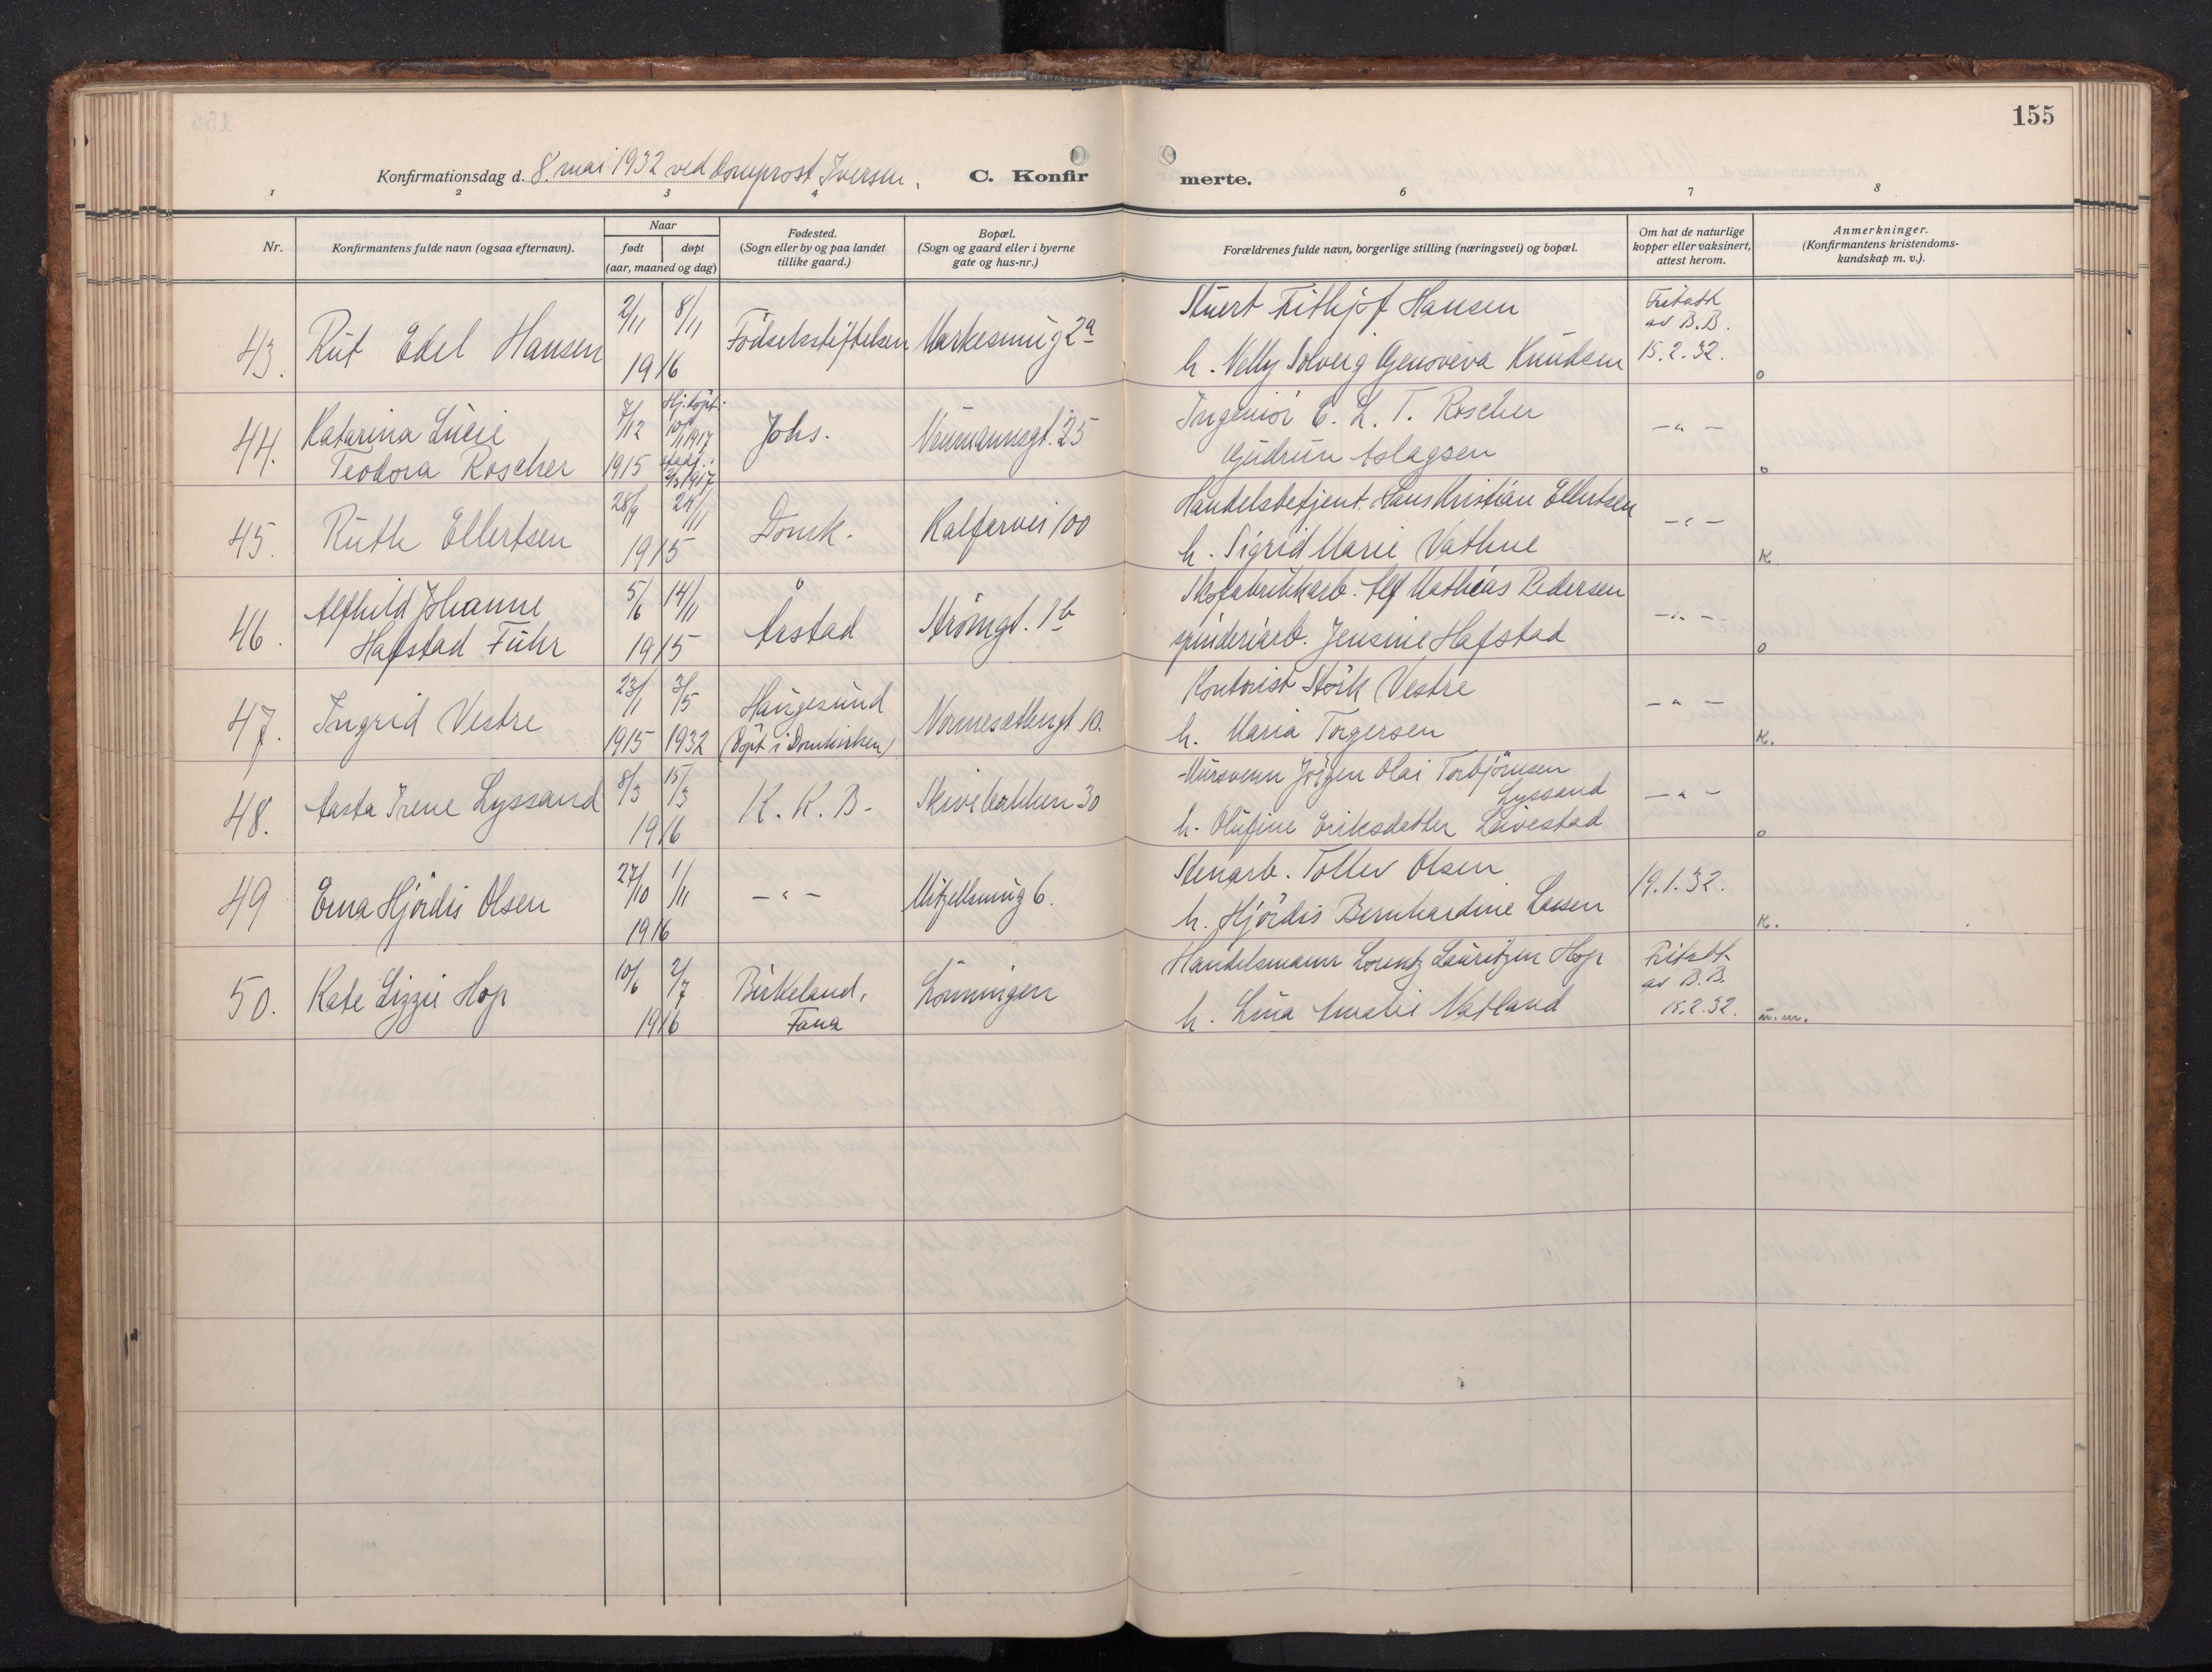 155
Konfirmationsdag d. 8. mai 1932 ved Domprost Iversen. C. Konfirmerte.
1 2 3 4 6 7 8
Nr. Konfirmantens fulde navn (ogsaa efternavn). Naar født døpt (aar, maaned og dag) Fødested. (Sogn eller by og paa landet tillike gaard.) Bopæl. (Sogn og gaard eller i byerne gate og hus-nr.) Forældrenes fulde navn, borgerlige stilling (næringsvei) og bopæl. Om hat de naturlige kopper eller vaksinert, attest herom. Anmerkninger. (Konfirmantens kristendoms-kundskap m. v.).
43. Rut Edel Hansen 2/11 8/11 1916 Fødselsstiftelsen Markesmug 2a Stuert Fithjof Hansen
h. Nelly Solveig Genoveva Knudsen Fritatt av B.B. 15.2.32. o
44. Katarina Lucie Teodora Roscher 7/12 1915 Hj.døpt. 10/1 1917 Johs. Neumannsgt. 25 Ingeniør C. L. T. Roscher
Gudrun Aslagsen -"- o
45. Ruth Ellertsen 28/9 24/11 1915 Domk. Kalfarvei 100 Handelsbetjent. Hans Kristian Ellertsen
h. Sigrid Marie Vathne -"- K.
46. Alfhild Johanne Hafstad Führ 5/6 14/11 1915 Årstad Strömgt. 1b Skofabrikkarb. Alf Mathias Pedersen
spinderiarb. Jensine Hafstad -"- o
47. Ingrid Vestre 23/1 1915 3/5 1932 Haugesund (Døpt i Domkirken) Vonnesættergt 10. Kontorist Störk Vestre
h. Maria Torgersen -"- K.
48. Aasta Irene Lyssand 8/3 15/3 1916 K. K. B. Skivebakken 30 Mursvenn Jörgen Olai Torbjörnsen Lyssand
h. Olufine Eriksdatter Leivestad -"- o
49 Erna Hjördis Olsen 27/10 1/11 1916 -"- Mitzellsmug 6. Stenarb. Tollev Olsen
h. Hjördis Bernhardine Larsen 19.1.32. K.
50. Kate Lizzie Hop 10/6 2/7 1916 Birkeland, Fana Lönningen Handelsmann Lorentz Lauritzen Hop
h. Lina Amalie Natland Fritatt av B.B. 15.2.32. m.m.